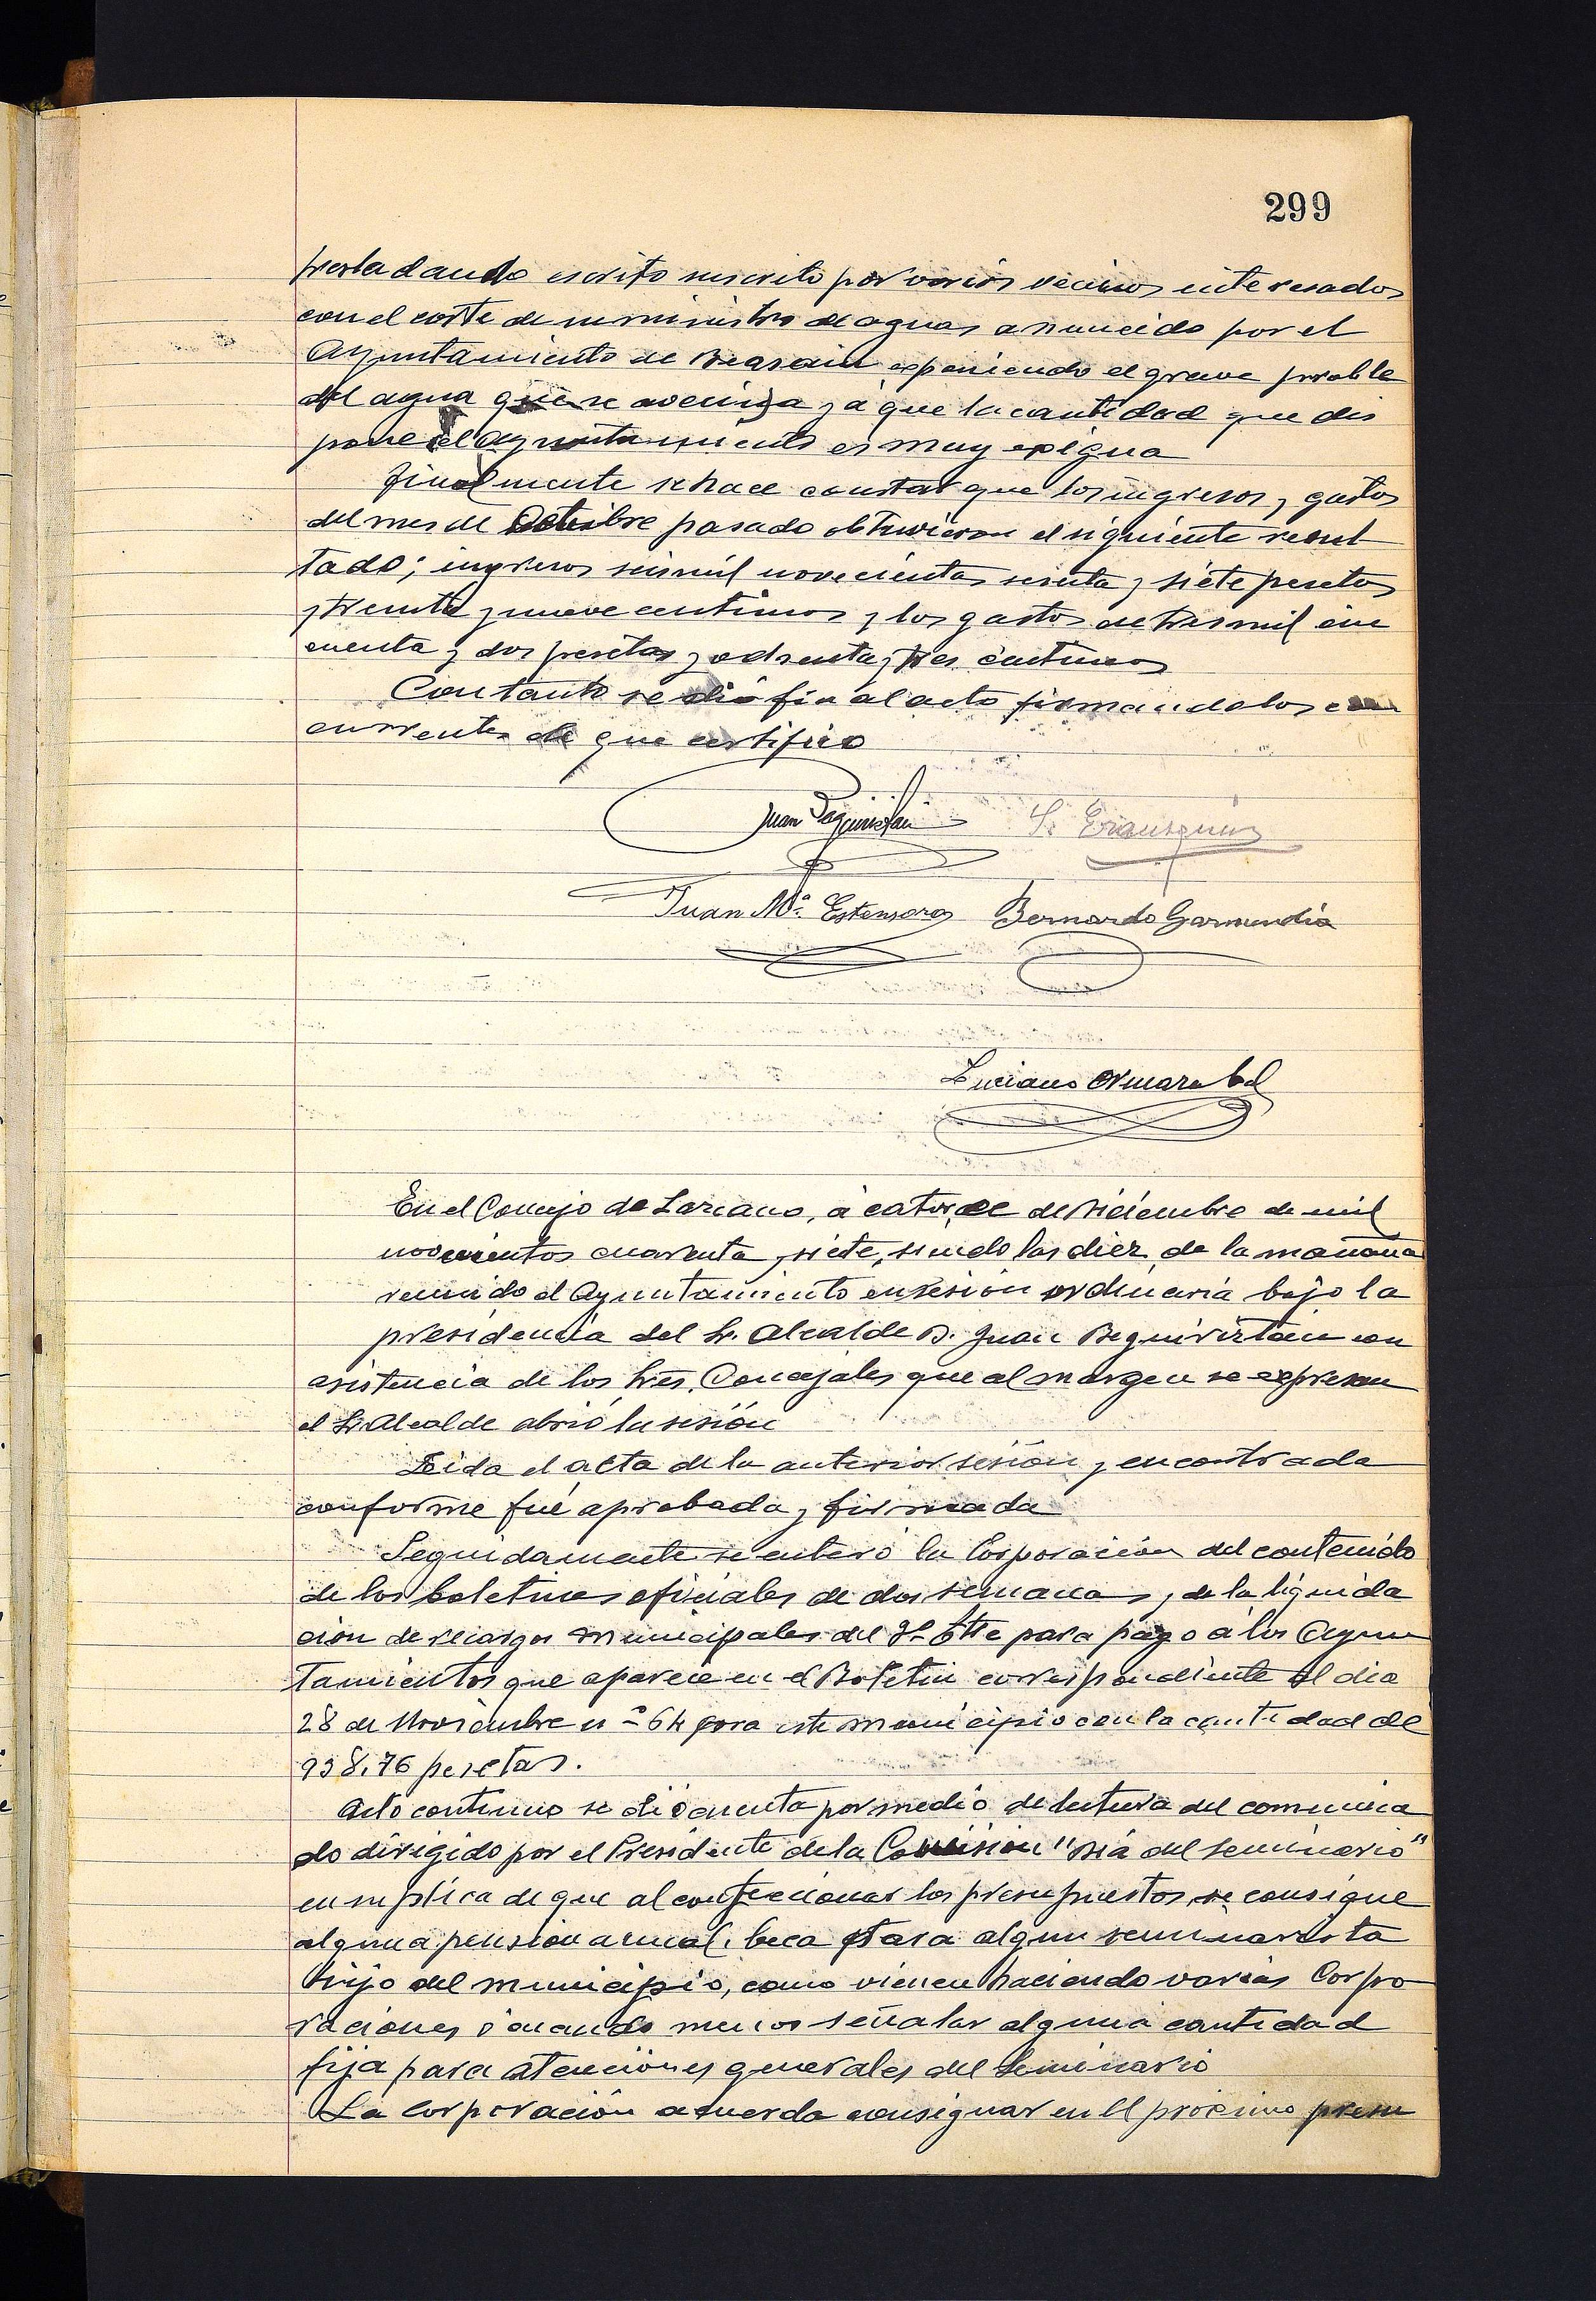 299
trasladando escrito suscrito por varios vecinos interesados
con el corte de suministro de aguas anunciado por el
Ayuntamiento de Beasain exponiendo el grave proble
del agua que se avecina ya que la cantidad que dis
pone el Ayuntamiento es muy exigua
Finalmente se hace constar que los ingresos y gastos
del mes de Octubre pasado obtuvieron el siguiente resul
tado; ingresos seis mil novecientas sesenta y siete pesetas
y treinta y nueve centimos y los gastos de tres mil cin
cuenta y dos pesetas y ochenta y tres centimos
Con tanto se dió fin al acto firmando los con
currentes de que certifico
Juan Beguiristain S. Erausquin
Juan Mª Estensoro Bernardo Garmendia
Luciano Ormazabal
En el Concejo de Lazcano, a catorce de Diciembre de mil
novecientos cuarenta y siete, siendo las diez de la mañana
reunido el Ayuntamiento en sesión ordinaria bajo la
presidencia del Sr. Alcalde D. Juan Beguiristain con
asistencia de los Sres. Concejales que al margen se expresan
el Sr. Alcalde abrió la sesión
Leida el acta de la anterior sesión y encontrada
conforme fué aprobada y firmada
Seguidamente se enteró la Corporación del contenido
de los boletines oficiales de dos semanas y de la liquida
ción de recargos municipales del 3º Ttre para pago á los Ayun
tamientos que aparece en el Boletin correspondiente al dia
28 de Noviembre nº 64 para este municipio con la cantidad de
938,76 pesetas.
Acto continuo se dió cuenta por medio de lectura del comunica
do dirigido por el Presidente de la Comision "Dia del Seminario"
en suplica de que al confeccionar los presupuestos se consigne
alguna pension anual, beca para algun seminarista
hijo del municipio, como vienen haciendo varias Corpo
raciones ó cuando menos señalar alguna cantidad
fija para atenciones generales del Seminario
La Corporación acuerda consignar en el proximo presu